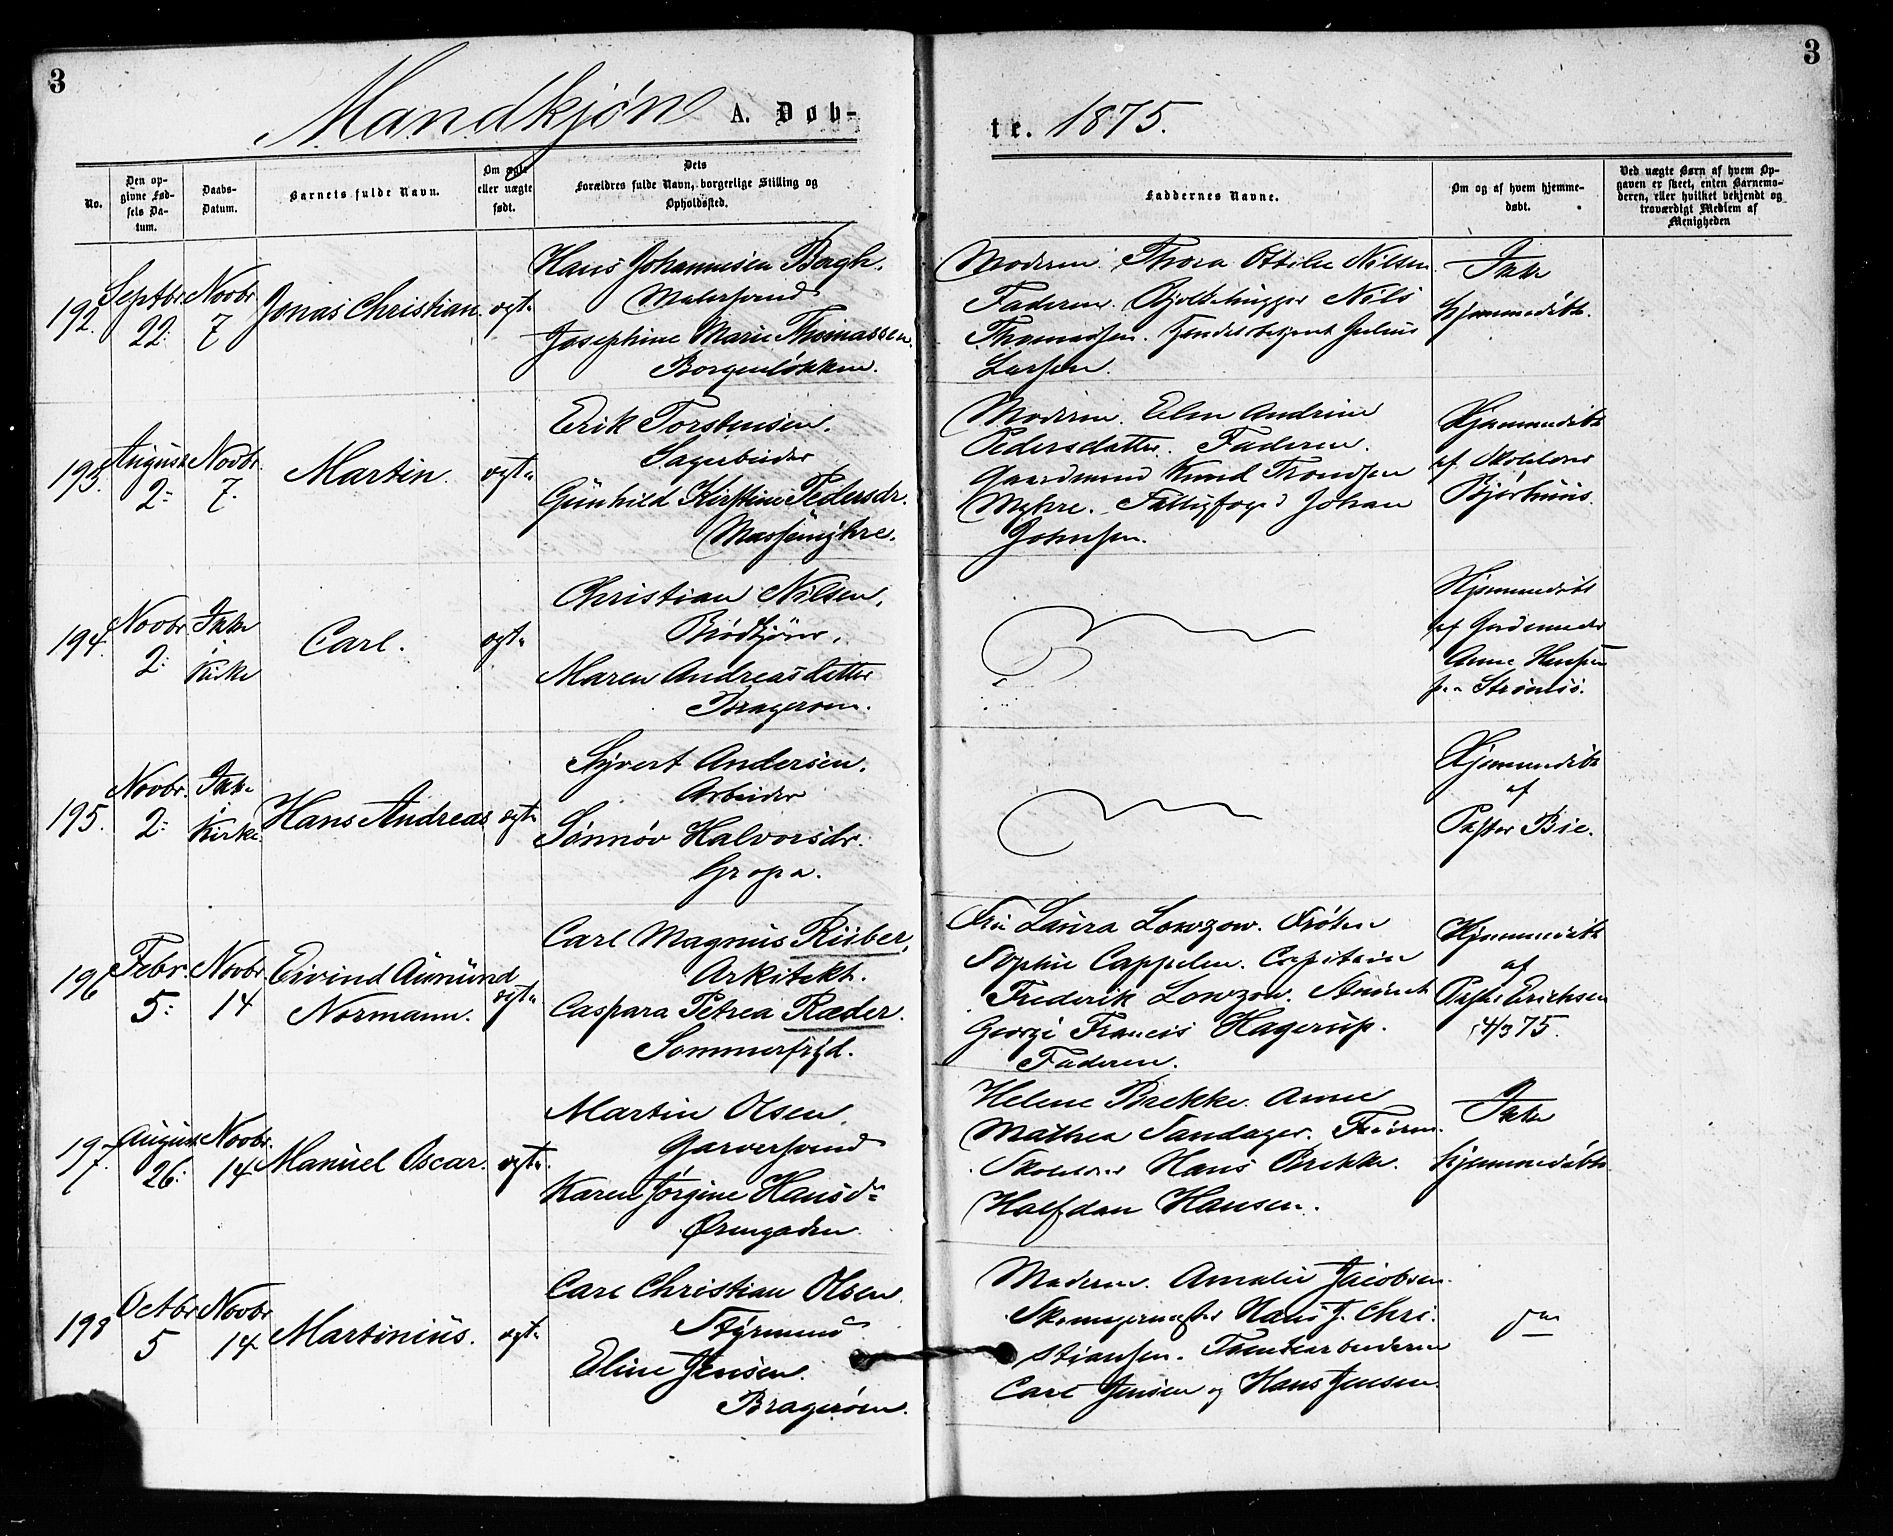 3
3
Mandkjøn A. Døb-
te. 1875.
No.
Den op-
givne Fød-
sels Da-
tum.
Daabs-
Datum.
Barnets fulde Navn.
Om ægte
eller uægte
født.
Dets
Forældres fulde Navn, borgerlige Stilling og
Opholdssted.
Faddernes Navne.
Om og af hvem hjemme-
døbt.
Ved uægte Børn af hvem Op-
gaven er skeet, enten Barnemo-
deren, eller hvilket bekjendt og
troværdigt Medlem af
Menigheden
192.
Septbr
22.
Novbr
7
Jonas Christian.
ægte
Hans Johannesen Bergh.
Malersvend
Josephine Marie Thomassen.
Borgenløkken.
Moderen. Thora Ottilie Nilsen.
Faderen. Nils
Thomassen. Julius
Larsen.
Ikke
hjemmedøbt.
193.
August
2.
Novbr.
7.
Martin.
ægte
Erik Torstensen.
Sagarbeider
Gunhild Kirstine Pedersdr.
Moderen. Elen Andrine
Pedersdatter. Faderen.
Gaardmand Knud Trondsen
Myhre. Fattigfoged Johan
Johnsen.
Hjemmedøbt
af Skolelærer
Bjørhuus.
194.
Novbr
2.
Ikke
i
Kirke
Carl.
ægte
Christian Nilsen.
Maren Andreasdatter
Bragerøen.
Hjemmedøbt
af Jordemoder
Anne Hansen
Strømsø.
195.
Novbr.
2.
Ikke
i
Kirke.
Hans Andreas
ægte
Syvert Andersen.
Arbeider
Sønnøv Halvorsdr.
Gropa.
Hjemmedøbt
af
Pastor Bie.
196
Febr.
5.
Novbr
14
Eivind Aamund
Normann.
ægte
Carl Magnus Riiber,
Arkitekt.
Caspara Petrea Ræder.
Sommerfryd.
Fru Laura Lowzow. Frøken
Sophie Cappelen. Capitain
Frederik Lowzow. Student
George Francis Hagerup.
Faderen.
Hjemmedøbt
af
Pastor Erichsen
14/3 75.
197.
August
26.
Novbr.
14
Manuel Oscar.
ægte
Martin Olsen,
Garversvend
Karen Jørgine Hansdr
Øvrengaden.
Helene Brekke. Anne
Mathea Sandager. Faderen.
Skolelærer Hans Brekke.
Halfdan Hansen.
Ikke
hjemmedøbt.
198
Octbr
5
Novbr
14.
Martinius.
ægte
Carl Christian Olsen.
Styrmand
Eline Jensen.
Bragerøen.
Moderen. Amalie Jacobsen.
Skomagermester Hans J. Chri-
stiansen. Tomtearbeiderne
Carl Jensen og Hans Jensen.
do